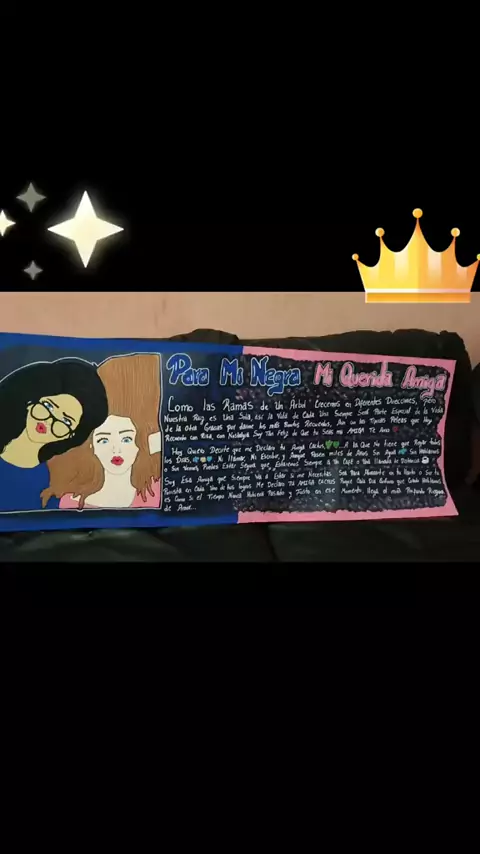 Para Mi Negra Mi Querida Amiga
Como las Ramas de Un Árbol Crecemos en Diferentes Direcciones, Pero
Nuestra Raíz es Una Sola, así la Vida de Cada Una Siempre Será Parte Especial de la Vida
de la otra Gracias por darme los más Recuerdos, Aún con las Peleas que Hoy
Recuerdo con Risa, con Nostalgia Soy Tan Feliz de Que tu Seas mi Amiga Te Amo
Hoy Quiero Decirte que me Declaro tu Amiga Cactus A la Que No tiene que Regar todos
los Días, Ni llamar, Ni Escribir, y Aunque Pasen miles de Años Sin Agua Sin Hablarnos
o Sin Vernos, Puedes Estar Segura que Estaremos Siempre a Un Café o Una Llamada de Distancia
Soy Esa Amiga que Siempre Va a Estar si me Necesitas Sea Para Abrazarte en tu llanto o Ser tu
en Cada Uno de tus logros Me Declaro Tu Amiga Cactus Porque Cada Vez que Hablamos
es Como si el Tiempo Nunca Hubiera Pasado y Justo en ese Momento llega el más
de Amor...